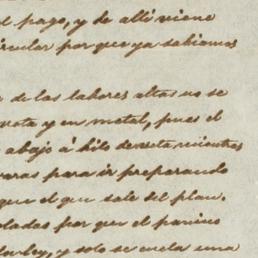 el pago, y de allí viene
circular por que ya sabiamos
de las labores altas no se
rota y en metal, pues el
abajo á hilo de veta mientras
varas para ir preparando
que el que sale del plan.
coladas por que el panino
y solo se cuela una